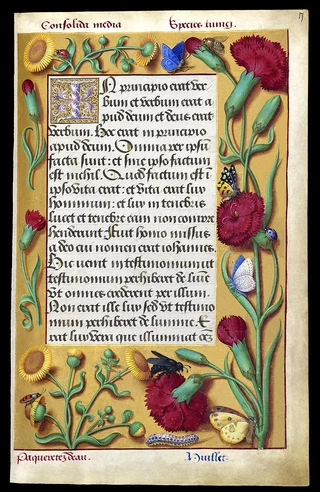 Consolida media
Species iungi.
In principio erat ver
bum et verbum erat a
pud deum et deus erat
verbum. Hoc erat in principio
apud deum. Omnia per ipsū
facta sunt: et sine ipso factum
est nichil. Quod factum est ī
ipso vita erat: et vita erat lux
hominum: et lux in tenebris
lucet et tenebre eam non compre
henderunt. Fuit homo missus
a deo cui nomen erat iohannes.
Hic uenit in testimonium ut
testimonium perhiberet de
Ut omnes crederent per illum.
Non erat ille lux sed ut testimo
nium perhiberet de lumine. E
rat lux vera que illuminat
Paqueretes deau.